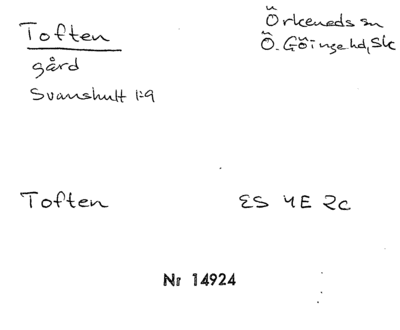 Toften
Örkeneds sn
Ö. Göinge hd, Sk
gård
Svanshult 1:9
Toften ES 4E 2c
Nr 14924